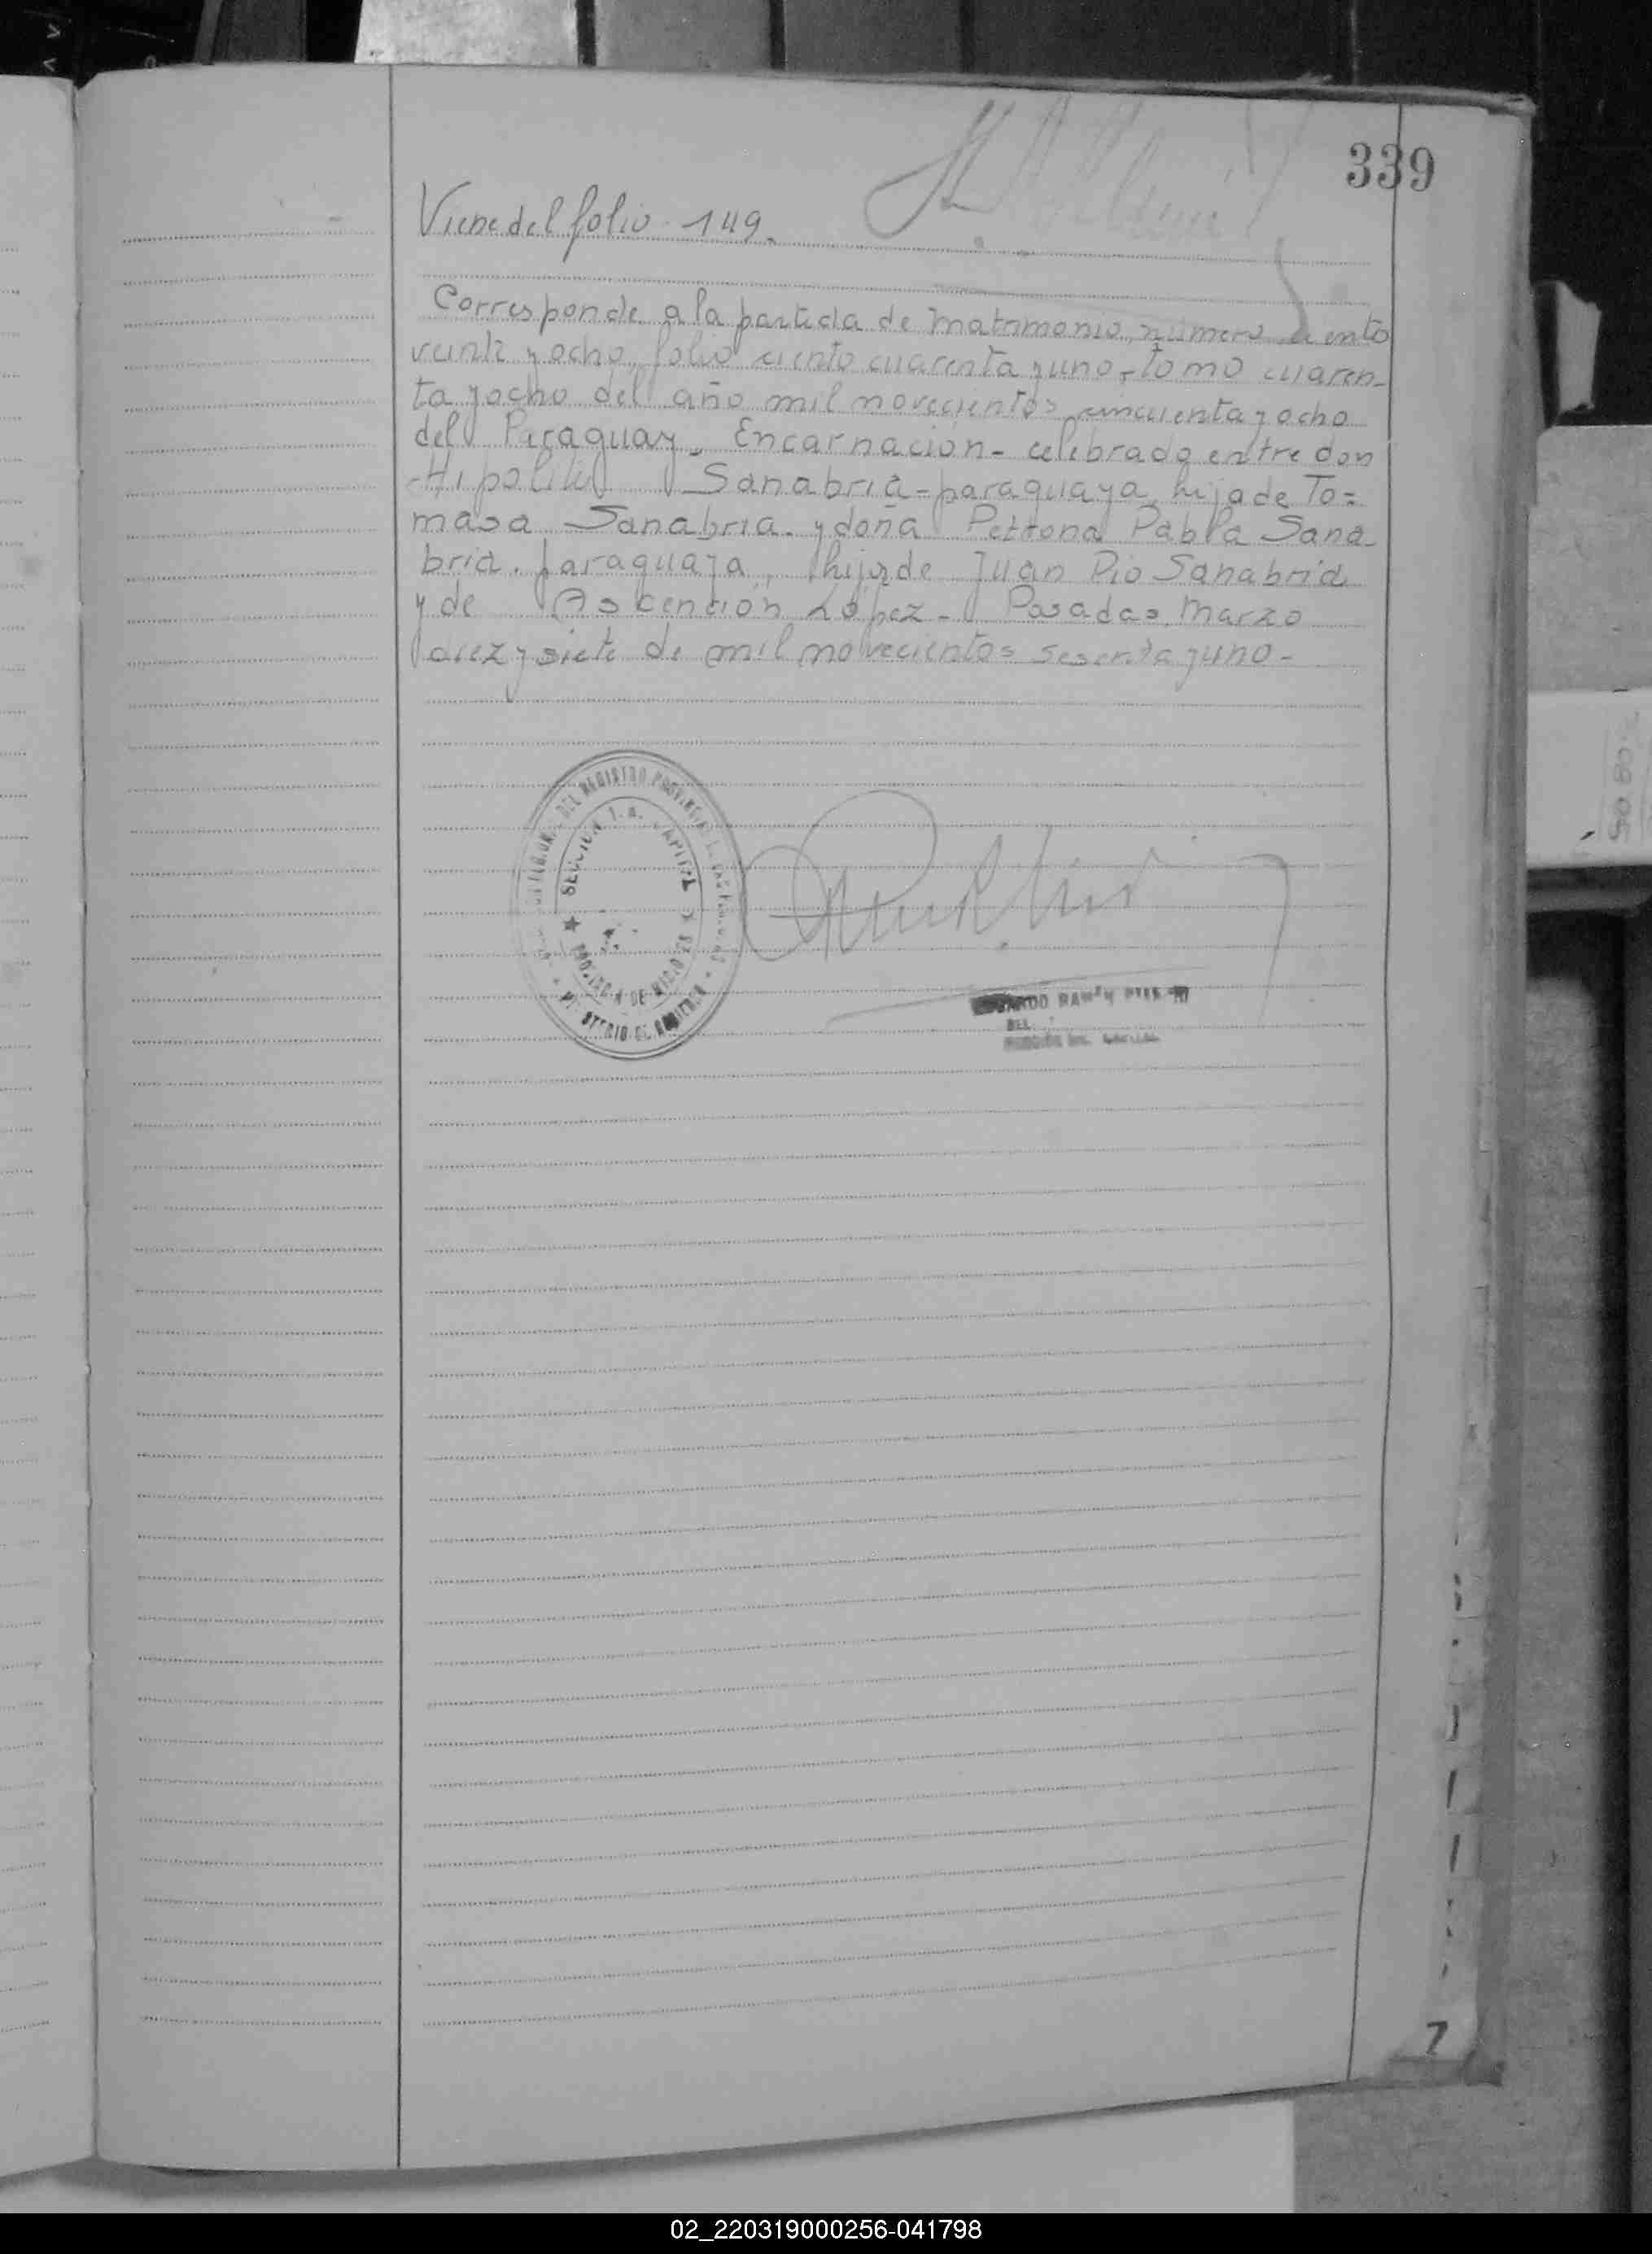 339
Viene del folio - 149.
Corresponde a la partida de matrimonio, número ciento
veinte y ocho, folio ciento cuarenta y uno, tomo cuaren-
ta y ocho del año mil novecientos cincuenta y ocho
del Paraguay, Encarnación - celebrado entre don
Hipólito Sanabria - paraguaya, hijo de To=
masa Sanabria. y doña Petrona Pabla Sana
bria. paraguaya, hija de Juan Pio Sanabria
y de Ascención López - Posadas, Marzo
diez y siete de mil novecientos sesenta y uno -
DEL REGISTRO PROVINCIAL
SECCION 1.a. CAPITAL
MINISTERIO DE GOBIERNO
7
02_220319000256-041798